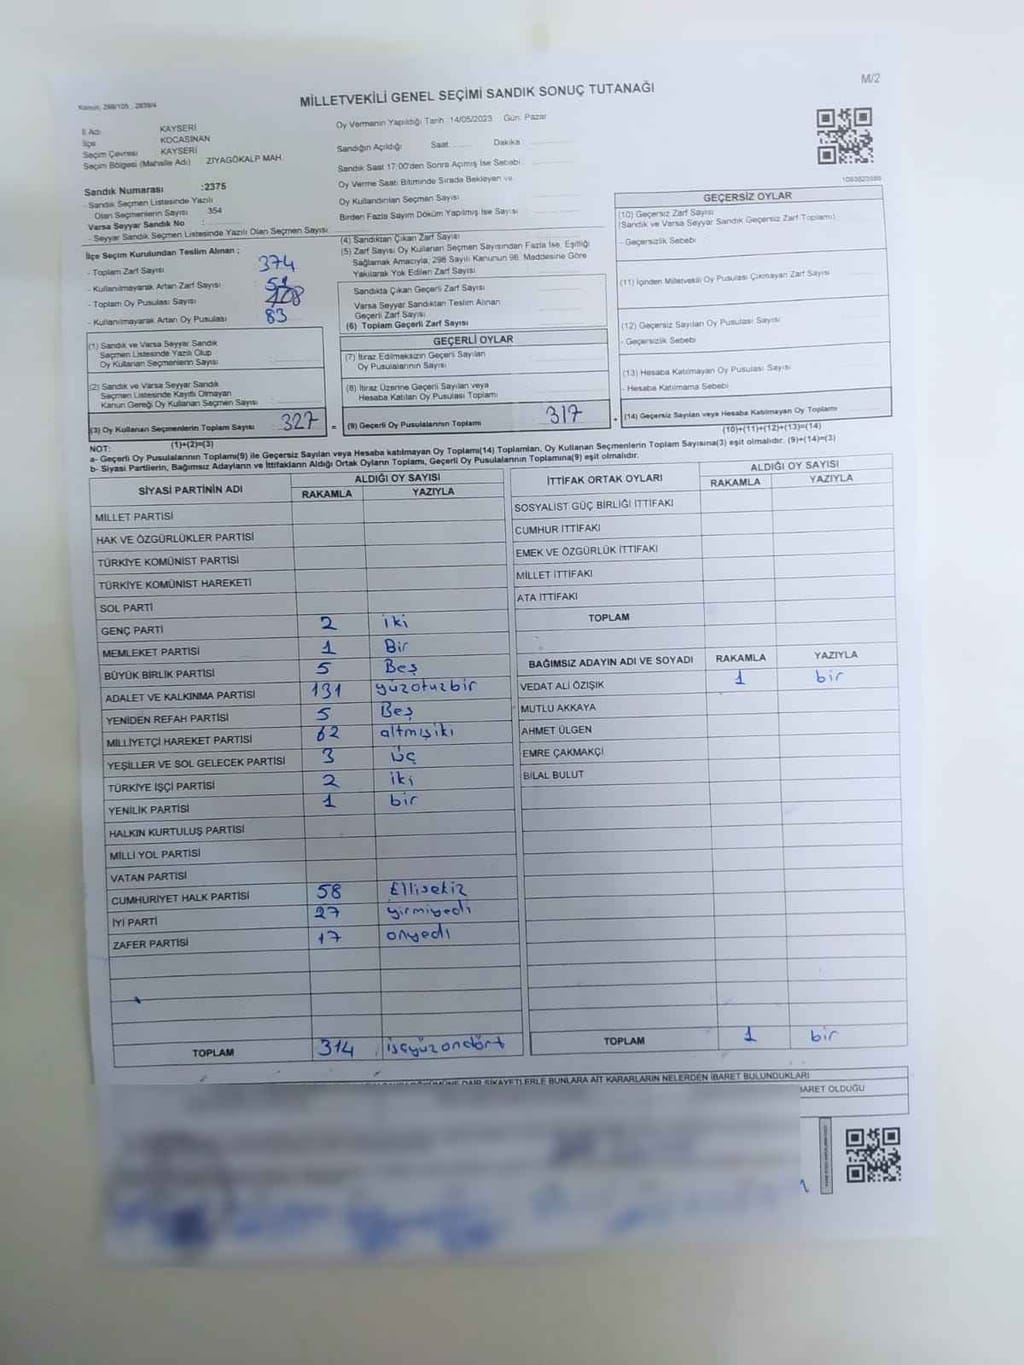 M/2
Kanun: 298/105 , 2839/4
MİLLETVEKİLİ GENEL SEÇİMİ SANDIK SONUÇ TUTANAĞI
İl Adı KAYSERİ
İlçe KOCASİNAN
Seçim Çevresi KAYSERİ
Seçim Bölgesi (Mahalle Adı) ZİYAGÖKALP MAH.
Sandık Numarası :2375
- Sandık Seçmen Listesinde Yazılı
Olan Seçmenlerin Sayısı 354
Varsa Seyyar Sandık No :
- Seyyar Sandık Seçmen Listesinde Yazılı Olan Seçmen Sayısı:
İlçe Seçim Kurulundan Teslim Alınan ;
- Toplam Zarf Sayısı 374
- Kullanılmayarak Artan Zarf Sayısı
- Toplam Oy Pusulası Sayısı
- Kullanılmayarak Artan Oy Pusulası 83
(1) Sandık ve Varsa Seyyar Sandık
Seçmen Listesinde Yazılı Olup
Oy Kullanan Seçmenlerin Sayısı
(2) Sandık ve Varsa Seyyar Sandık
Seçmen Listesinde Kayıtlı Olmayan
Kanun Gereği Oy Kullanan Seçmen Sayısı
(3) Oy Kullanan Seçmenlerin Toplam Sayısı 327 =
(1)+(2)=(3)
Oy Vermenin Yapıldığı Tarih :14/05/2023 Gün: Pazar
Sandığın Açıldığı Saat: Dakika :
Sandık Saat 17:00'den Sonra Açılmış İse Sebebi
Oy Verme Saati Bitiminde Sırada Bekleyen ve
Oy Kullandırılan Seçmen Sayısı
Birden Fazla Sayım Döküm Yapılmış İse Sayısı
(4) Sandıktan Çıkan Zarf Sayısı
(5) Zarf Sayısı Oy Kullanan Seçmen Sayısından Fazla İse, Eşitliği
Sağlamak Amacıyla, 298 Sayılı Kanunun 98. Maddesine Göre
Yakılarak Yok Edilen Zarf Sayısı
Sandıkta Çıkan Geçerli Zarf Sayısı
Varsa Seyyar Sandıktan Teslim Alınan
Geçerli Zarf Sayısı
(6) Toplam Geçerli Zarf Sayısı
GEÇERLİ OYLAR
(7) İtiraz Edilmeksizin Geçerli Sayılan
Oy Pusulalarının Sayısı
(8) İtiraz Üzerine Geçerli Sayılan veya
Hesaba Katılan Oy Pusulası Toplamı
(9) Geçerli Oy Pusulalarının Toplamı 317 +
1083823886
GEÇERSİZ OYLAR
(10) Geçersiz Zarf Sayısı
(Sandık ve Varsa Seyyar Sandık Geçersiz Zarf Toplamı)
- Geçersizlik Sebebi
(11) İçinden Milletvekili Oy Pusulası Çıkmayan Zarf Sayısı
(12) Geçersiz Sayılan Oy Pusulası Sayısı
- Geçersizlik Sebebi
(13) Hesaba Katılmayan Oy Pusulası Sayısı
- Hesaba Katılmama Sebebi
(14) Geçersiz Sayılan veya Hesaba Katılmayan Oy Toplamı
(10)+(11)+(12)+(13)=(14)
NOT:
a- Geçerli Oy Pusulalarının Toplamı(9) ile Geçersiz Sayılan veya Hesaba katılmayan Oy Toplamı(14) Toplamları, Oy Kullanan Seçmenlerin Toplam Sayısına(3) eşit olmalıdır. (9)+(14)=(3)
b- Siyasi Partilerin, Bağımsız Adayların ve İttifakların Aldığı Ortak Oyların Toplamı, Geçerli Oy Pusulalarının Toplamına(9) eşit olmalıdır.
SİYASİ PARTİNİN ADI ALDIĞI OY SAYISI
RAKAMLA YAZIYLA
MİLLET PARTİSİ
HAK VE ÖZGÜRLÜKLER PARTİSİ
TÜRKİYE KOMÜNİST PARTİSİ
TÜRKİYE KOMÜNİST HAREKETİ
SOL PARTİ
GENÇ PARTİ 2 iki
MEMLEKET PARTİSİ 1 Bir
BÜYÜK BİRLİK PARTİSİ 5 Beş
ADALET VE KALKINMA PARTİSİ 131 yüzotuzbir
YENİDEN REFAH PARTİSİ 5 Beş
MİLLİYETÇİ HAREKET PARTİSİ 62 altmışiki
YEŞİLLER VE SOL GELECEK PARTİSİ 3 üç
TÜRKİYE İŞÇİ PARTİSİ 2 iki
YENİLİK PARTİSİ 1 bir
HALKIN KURTULUŞ PARTİSİ
MİLLİ YOL PARTİSİ
VATAN PARTİSİ
CUMHURİYET HALK PARTİSİ 58 Ellisekiz
İYİ PARTİ 27 yirmiyedi
ZAFER PARTİSİ 17 onyedi
TOPLAM 314 üçyüzondört
İTTİFAK ORTAK OYLARI ALDIĞI OY SAYISI
RAKAMLA YAZIYLA
SOSYALİST GÜÇ BİRLİĞİ İTTİFAKI
CUMHUR İTTİFAKI
EMEK VE ÖZGÜRLÜK İTTİFAKI
MİLLET İTTİFAKI
ATA İTTİFAKI
TOPLAM
BAĞIMSIZ ADAYIN ADI VE SOYADI RAKAMLA YAZIYLA
VEDAT ALİ ÖZIŞIK 1 bir
MUTLU AKKAYA
AHMET ÜLGEN
EMRE ÇAKMAKÇİ
BİLAL BULUT
TOPLAM 1 bir
DAİR ŞİKAYETLERLE BUNLARA AİT KARARLARIN NELERDEN İBARET BULUNDUKLARI
BARET OLDUĞU